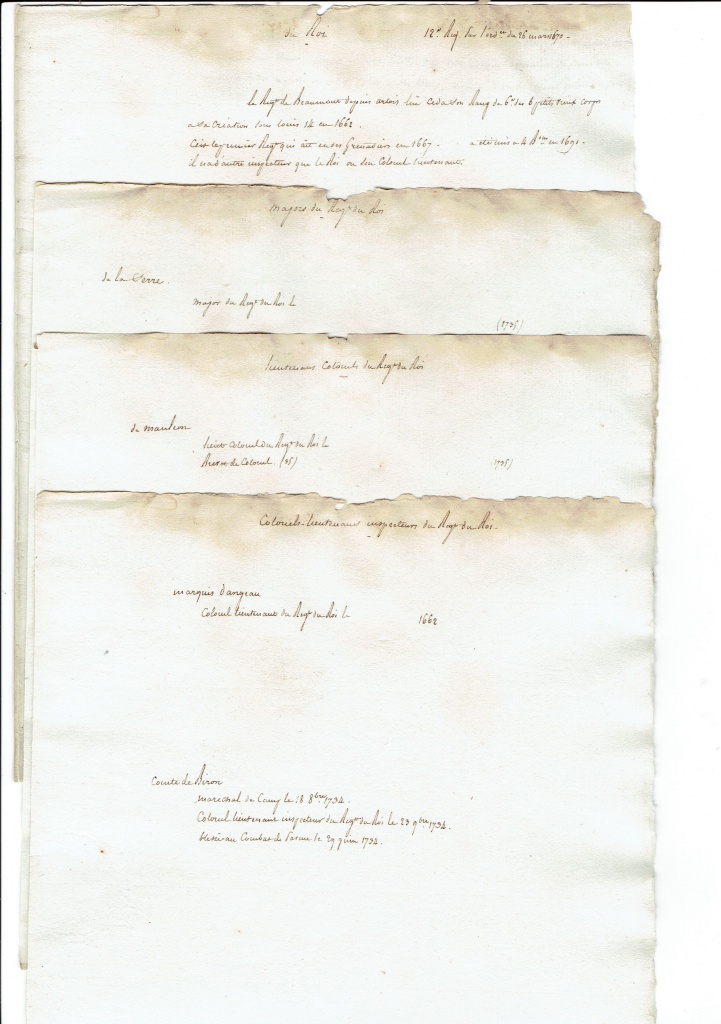 du Roi
12e Reg. sur l'ordce du 26 mars 1670.
le Regt de Beaumont depuis artois lui ceda son Rang de 6e des 6 petits vieux corps
a sa Création sous louis 14 en 1662.
C'est le premier Regt qui ait eu des Grenadiers en 1667. a été mis a 4 Bons en 1691.
il n'a d'autre inspecteur que le Roi ou son Colonel lieutenant.
majors du Regt du Roi
de la Serre.
major du Regt du Roi le
(1735)
lieutenans Colonels du Regt du Roi
de
lieutt Colonel du Regt du Roi le
Brevet de Colonel. (35)
(1735)
Colonels-lieutenans inspecteurs du Regt du Roi.
marquis dangeau
Colonel lieutenant du Regt du Roi le
1662
Comte de Biron
marechal de Camp le 18 8bre 1734.
Colonel lieutenant inspecteur du Regt du Roi le 23 9bre 1734.
blessé au Combat de Parme le 29 juin 1734.